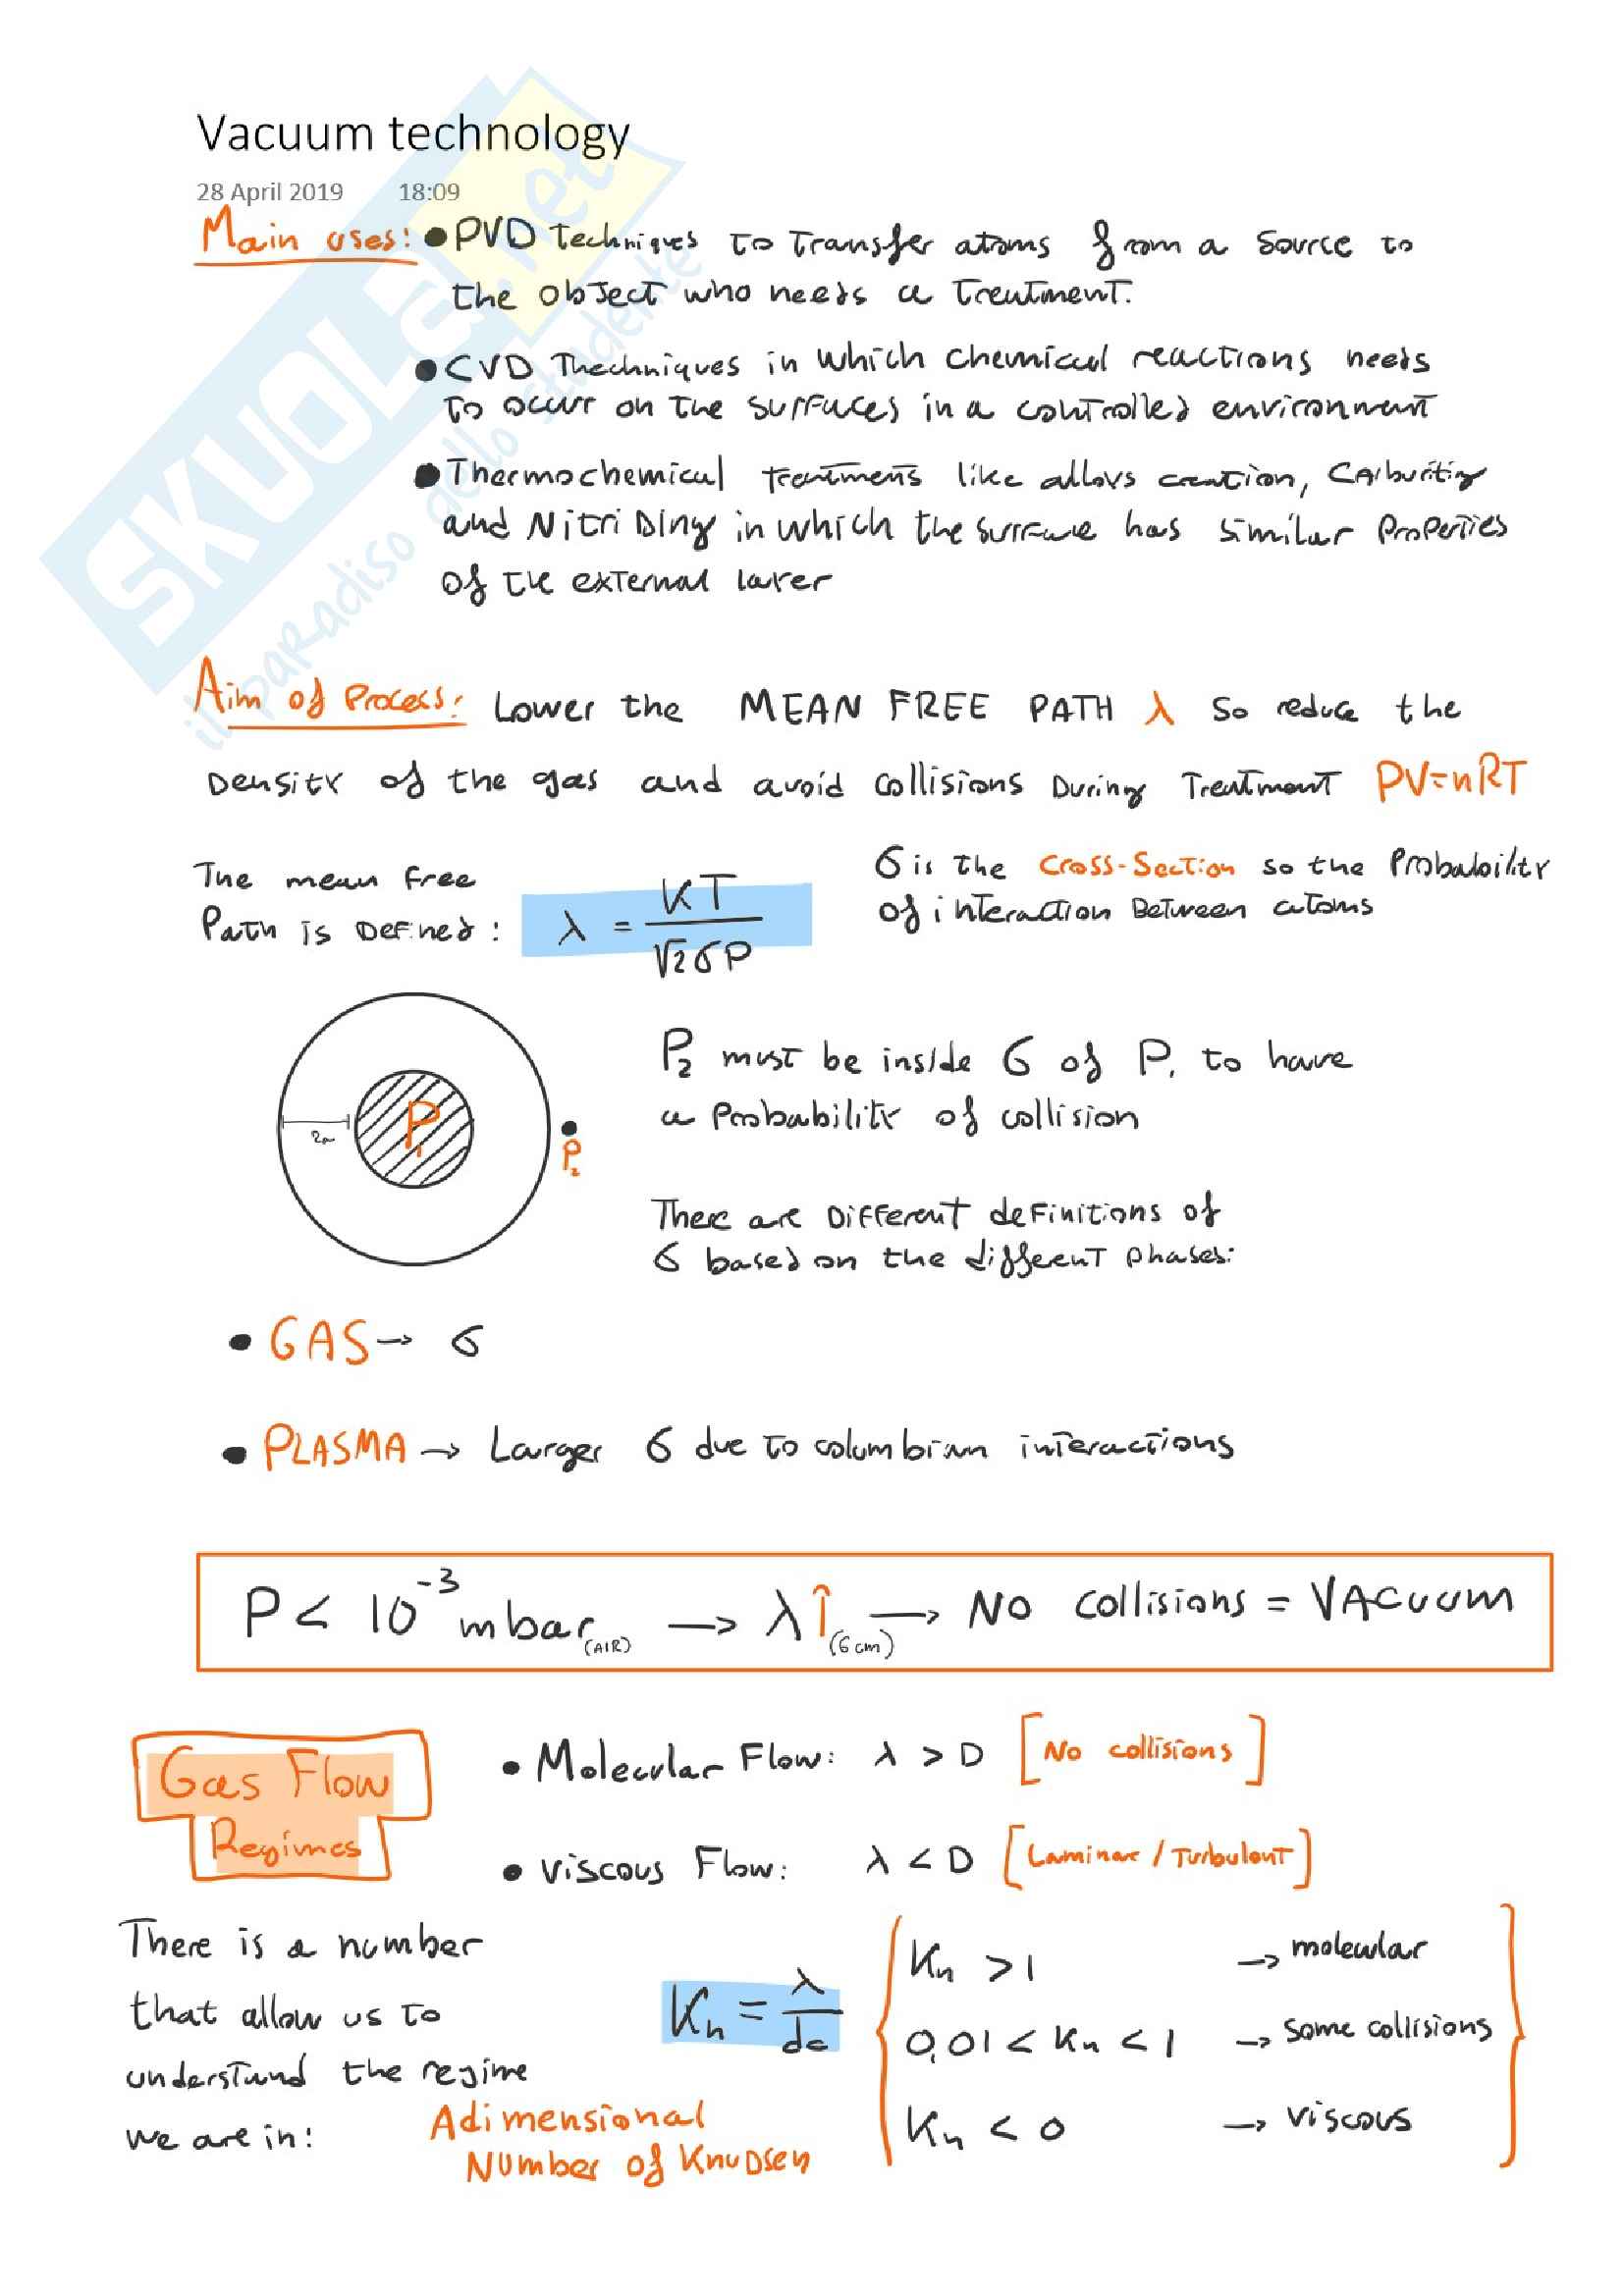 Vacuum technology
28 April 2019 18:09
SKUOLA.net
il paradiso dello studente
Main uses: • PVD techniques to transfer atoms from a source to
the object who needs a treatment.
• CVD Thechniques in which chemical reactions needs
to occur on the surfaces in a controlled environment
• Thermochemical treatments like alloys creation, carburiting
and Nitriding in which the surface has similar properties
of the external layer
Aim of Process: Lower the MEAN FREE PATH λ so reduce the
Density of the gas and avoid collisions During Treatment PV=nRT
The mean free
Path is Defined: λ = KT / √2 σ P
σ is the cross-section so the Probability
of interaction Between atoms
2r
P1
P2
P2 must be inside σ of P1 to have
a Probability of collision
There are Different definitions of
σ based on the different phases:
• GAS → σ
• PLASMA → Larger σ due to columbian interactions
P < 10^-3 mbar (AIR) → λ↑ (6cm) → No collisions = VACUUM
Gas Flow
Regimes
• Molecular Flow: λ > D [No collisions]
• Viscous Flow: λ < D [Laminar / Turbulent]
There is a number
that allow us to
understand the regime
we are in:
Kn = λ / dc
Adimensional
Number of Knudsen
Kn > 1 → molecular
0,01 < Kn < 1 → some collisions
Kn < 0 → viscous